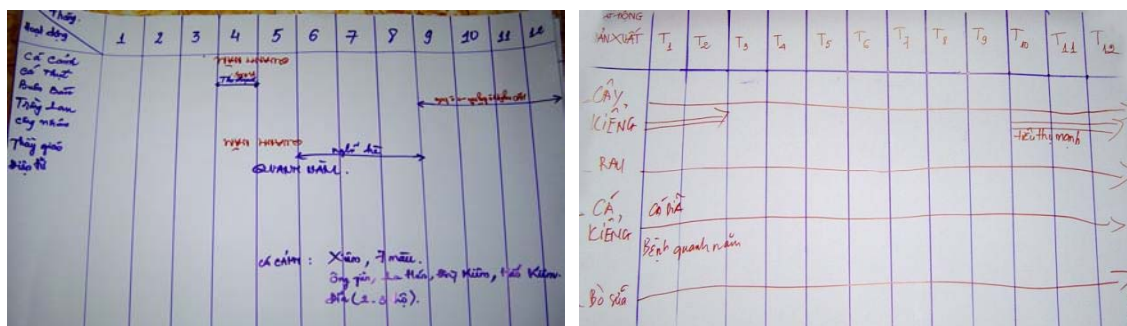 Tháng
Hoạt động
1 2 3 4 5 6 7 8 9 10 11 12
Cá cảnh
Cá thịt
Buôn bán
Trồng lan
Công nhân
Thầy giáo
QUANH NĂM
QUANH NĂM
nghỉ hè
QUANH NĂM.
CÁ CẢNH : Xiêm, 7 màu.
Ông tiên, La Hán,
Dĩa (2-3 hộ).
ĐỘNG
SẢN XUẤT
T1 T2 T3 T4 T5 T6 T7 T8 T9 T10 T11 T12
- CÂY
KIỂNG
tiêu thụ mạnh
- RAU
- CÁ
KIỂNG
Cá Dĩa
Bệnh quanh năm
- Bò sữa